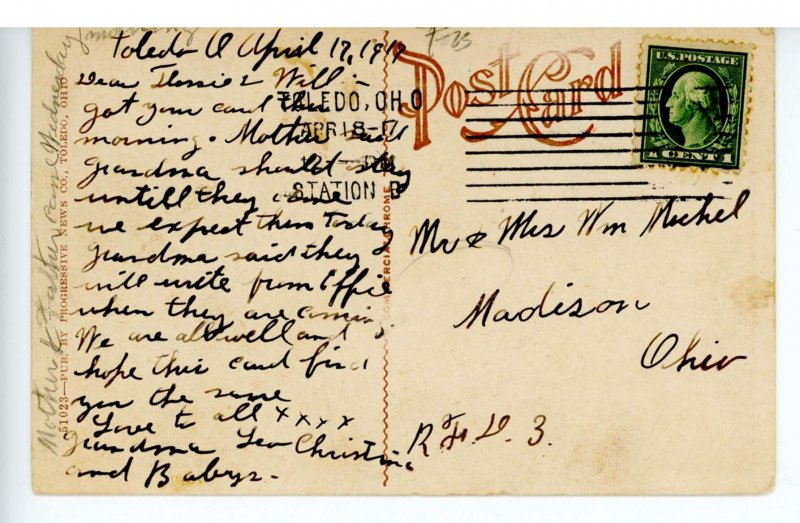 Toledo O April 17, 1917
Dear Flossie & Will :-
got your card this
morning. Mother said
grandma should stay
untill they come
we expect them Today
grandma said they
will write from Effie
when they are coming
We are all well and
hope this card find
you the same
Love to all x x x x
grandma Leo Christina
and Babys.
Mother & Father came Wednesday
morning
51023—PUB. BY PROGRESSIVE NEWS CO., TOLEDO, OHIO
COMMERCIALCHROME
Post Card
TOLEDO, OHIO
APR 18-17
12 — PM
STATION B
U.S. POSTAGE
1 CENT 1
Mr & Mrs Wm Michel
Madison
Ohio
R.F.D. 3.